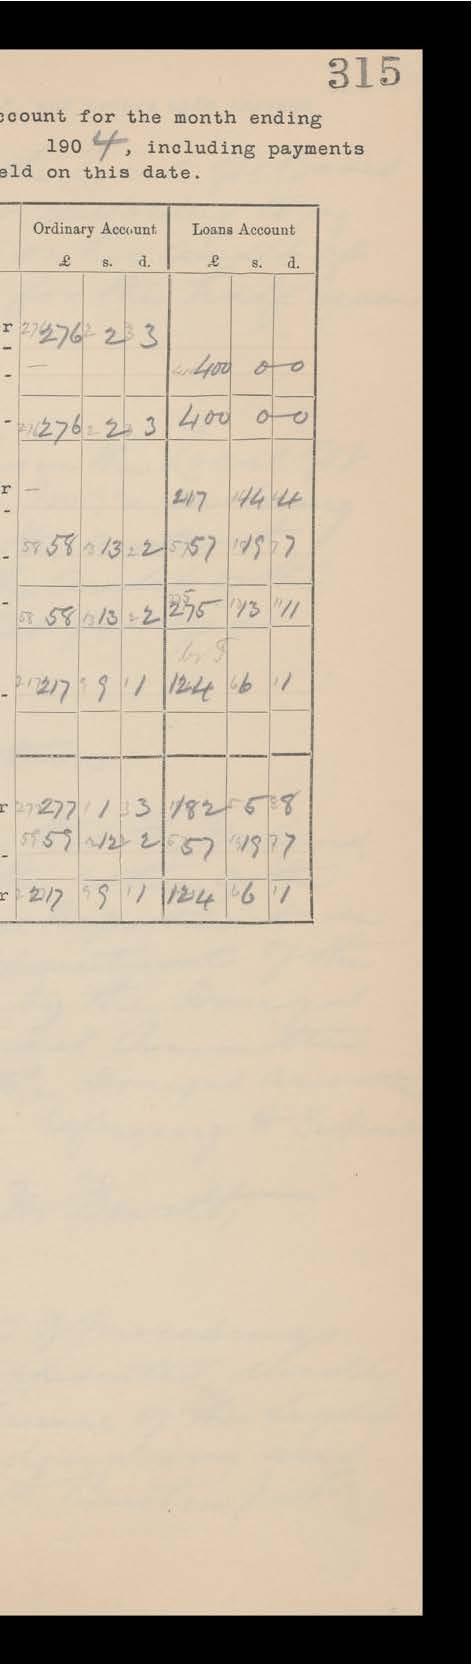 315
ccount for the month ending
190 4, including payments
eld on this date.
Ordinary Account Loans Account
£ s. d. £ s. d.
r 276 2 3
- — 400 0 0
- 276 2 3 400 0 0
r — 217 14 4
- 58 13 2 57 19 7
- 58 13 2 275 13 11
- 217 9 1 124 6 1
r 277 1 3 182 5 8
- 59 12 2 57 19 7
r 217 9 1 124 6 1